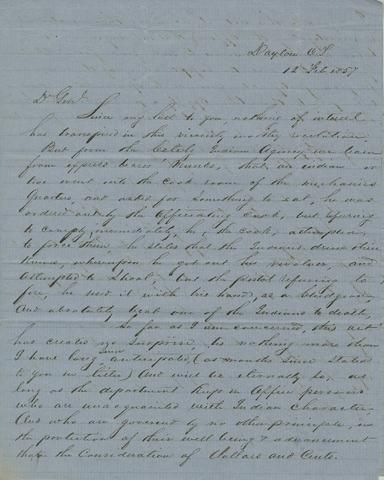 Dayton O.T.
12 Feb 1857
Dr Genl.
Since my last to you nothing of interest
has transpired in this vicinity worthy recitation.
But from the Indian Agency we learn
from that, an indian or
two went into the Cook room of the mechanics
Quarters and asked for something to eat, he was
ordered out by the Officiating Cook, but refusing
to comply immediately, he, the Cook, attempted,
to force them, he states that the Indians drew their
Knives, whereupon he got out his revolver, and
Attempted to Shoot, but the pistol refusing to
fire, he used it with his hand, as a bludgeon
And absolutely beat one of the Indians to death,
So far as I am concerned, this act
has created no Surprise, tis nothing more than
I have long since anticipated (as months since stated
to you in letter) And will be eternally so, as
long as the department Keeps in Office persons
who are unacquainted with Indian Character
And who are governed by no other principle, in
the protection of their well being & advancement
than the Consideration of Dollars and Cents.